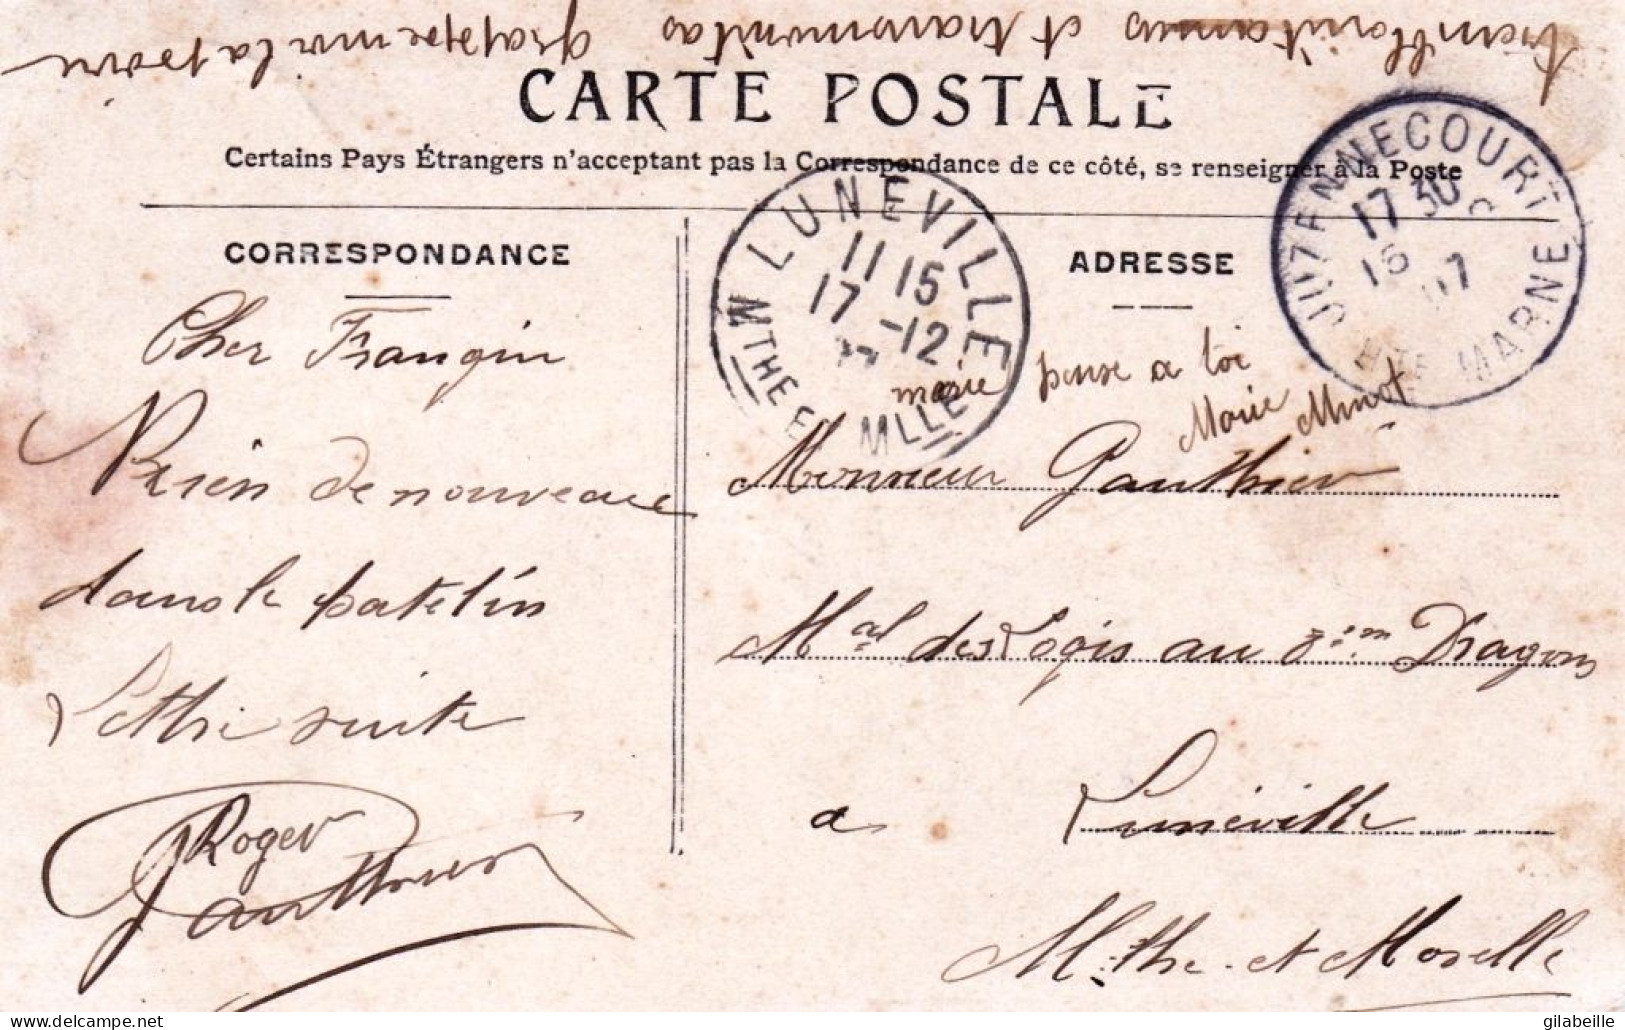 CARTE POSTALE
Certains Pays Étrangers n'acceptant pas la Correspondance de ce côté, se renseigner à la Poste
CORRESPONDANCE
ADRESSE
LUNEVILLE
11 15
17 -12
MTHE ET MLLE
JUZENNECOURT
17 30
16
07
HTE MARNE
Cher Frangin
Rien de nouveau
dans le patelin
Lettre suite
Roger
Gauthier
marie pense a toi
Marie Minot
Monsieur Gauthier
Mal des Logis au 8ième Dragons
a Lunéville
M.the et Moselle
gilabeille